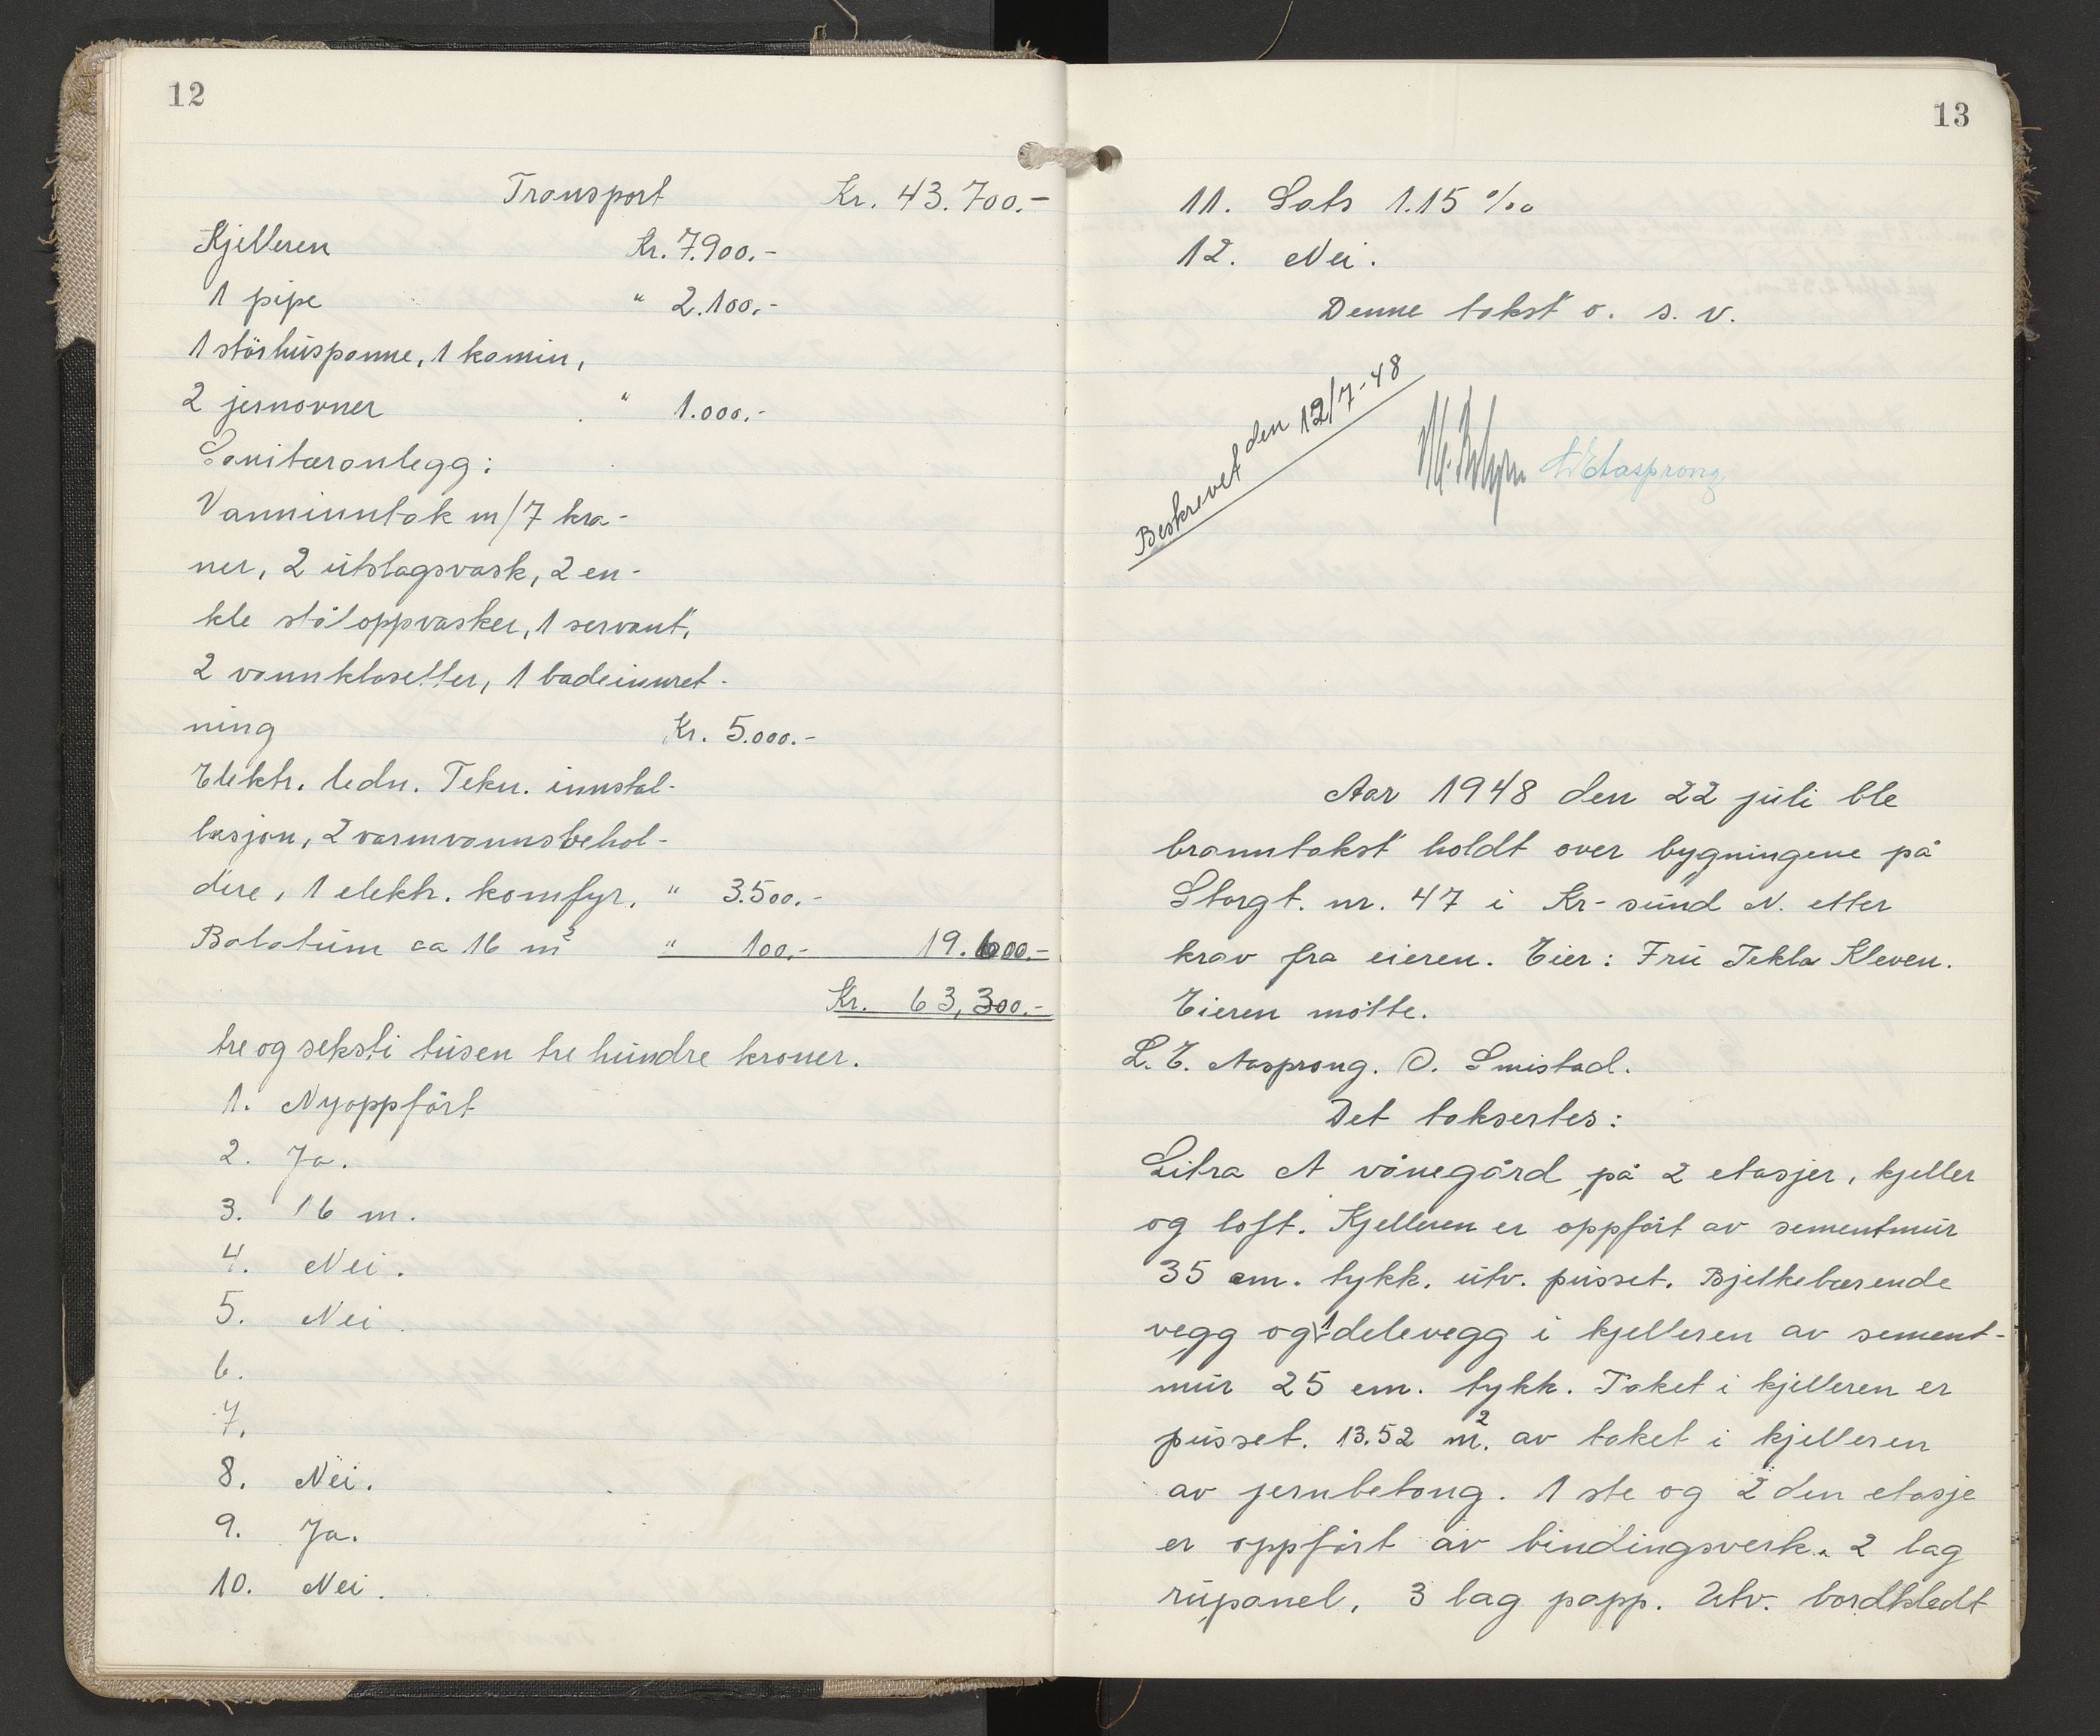 12
Transport Kr. 43.700.-
Kjelleren Kr. 7.900.-
1 pipe " 2.100.-
1 störhuspanne, 1 kamin,
2 jernovner " 1.000.-
Sanitæranlegg:
Vanninntak m/7 kra-
ner, 2 utslagsvask, 2 en-
kle ståloppvasker, 1 servant,
2 vannklosetter, 1 badeinnret-
ning Kr. 5.000.-
Elektr. ledn. Tekn. innstal-
lasjon, 2 varmvannsbehol-
dere, 1 elektr. komfyr. " 3.500.-
Balatum ca 16 m² " 100.- 19.600.-
Kr. 63,300.-
tre og seksti tusen tre hundre kroner.
1. Nyoppfört
2. Ja.
3. 16 m.
4. Nei.
5. Nei
6.
7.
8. Nei.
9. Ja.
10. Nei.
13
11. Sats 1.15 ‰
12. Nei.
Denne takst o. s. v.
Beskrevet den 12/7-48
Aasprong
Aar 1948 den 22 juli ble
branntakst holdt over bygningene på
Storgt. nr. 47 i Kr-sund N. etter
krav fra eieren. Eier: Fru Tekla Kleven.
Eieren mötte.
L. E. Aasprong. O. Smistad.
Det taksertes:
Litra A vånegård på 2 etasjer, kjeller
og loft. Kjelleren er oppfört av sementmur
35 cm. tykk. utv. pusset. Bjelkebærende
vegg og 1 delevegg i kjelleren av sement-
mur 25 cm. tykk. Taket i kjelleren er
pusset. 13.52 m². av taket i kjelleren
av jernbetong. 1 ste og 2 den etasje
er oppfört av bindingsverk. 2 lag
rupanel, 3 lag papp. Utv. bordkledt